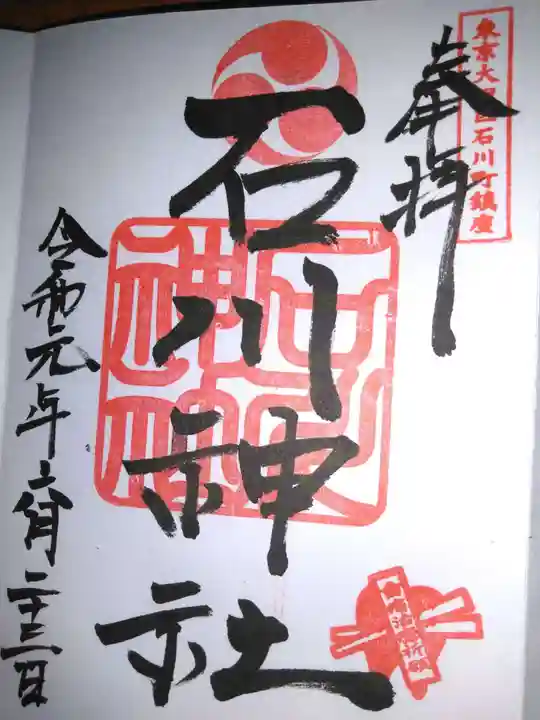 東京大田区石川町鎮座
奉拝
石川神社
令和元年六月二十三日